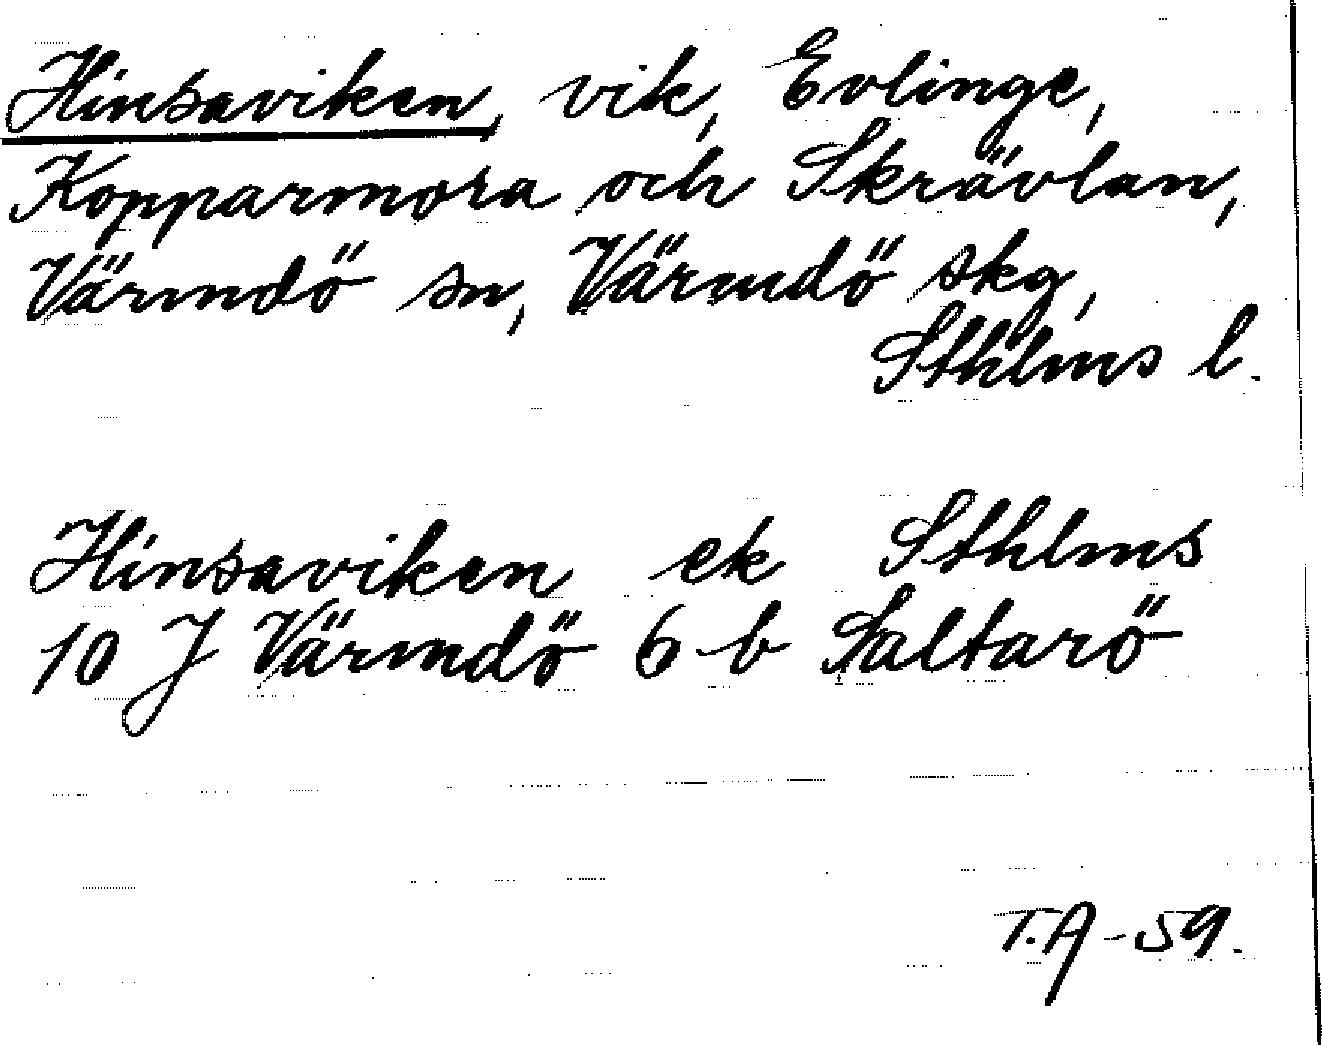 Hinsaviken, vik, Evlinge,
Kopparmora och Skrävlan,
Värmdö sn, Värmdö skg,
Sthlms l.
Hinsaviken ek Sthlms
10 J Värmdö 6 b Saltarö
T.A -59.